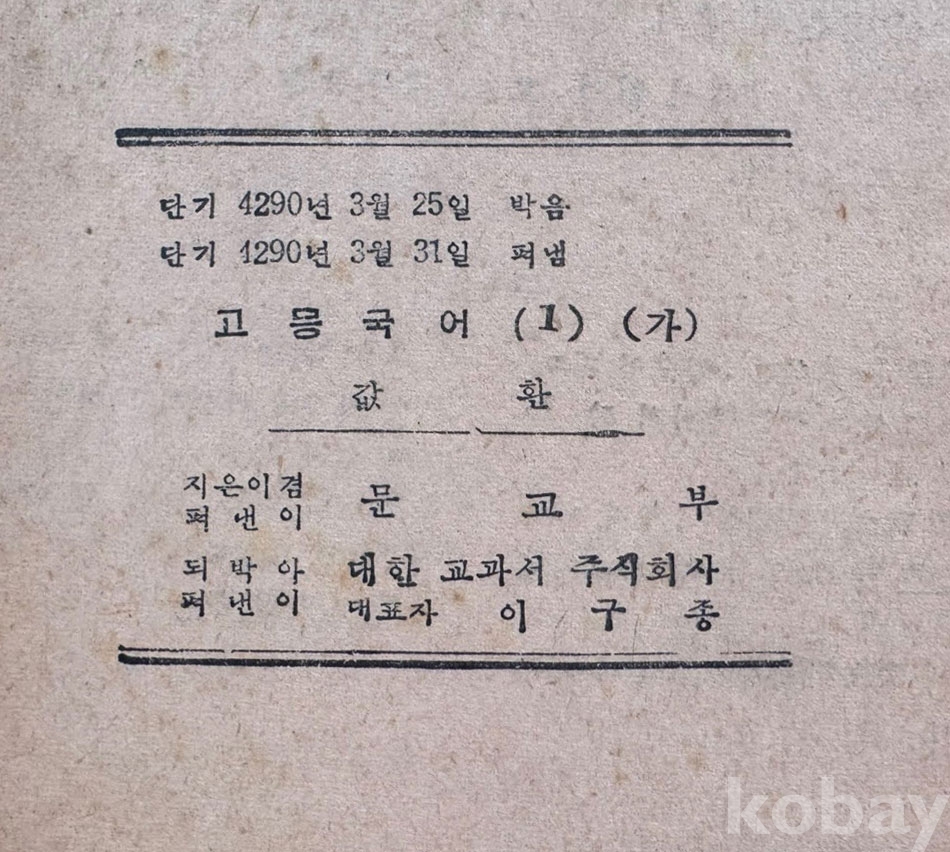 단기 4290년 3월 25일 박음
단기 4290년 3월 31일 펴냄
고등국어 (1) (가)
값 환
지은이겸 펴낸이 문교부
되박아 펴낸이 대한 교과서 주식회사
대표자 이구종
kobay